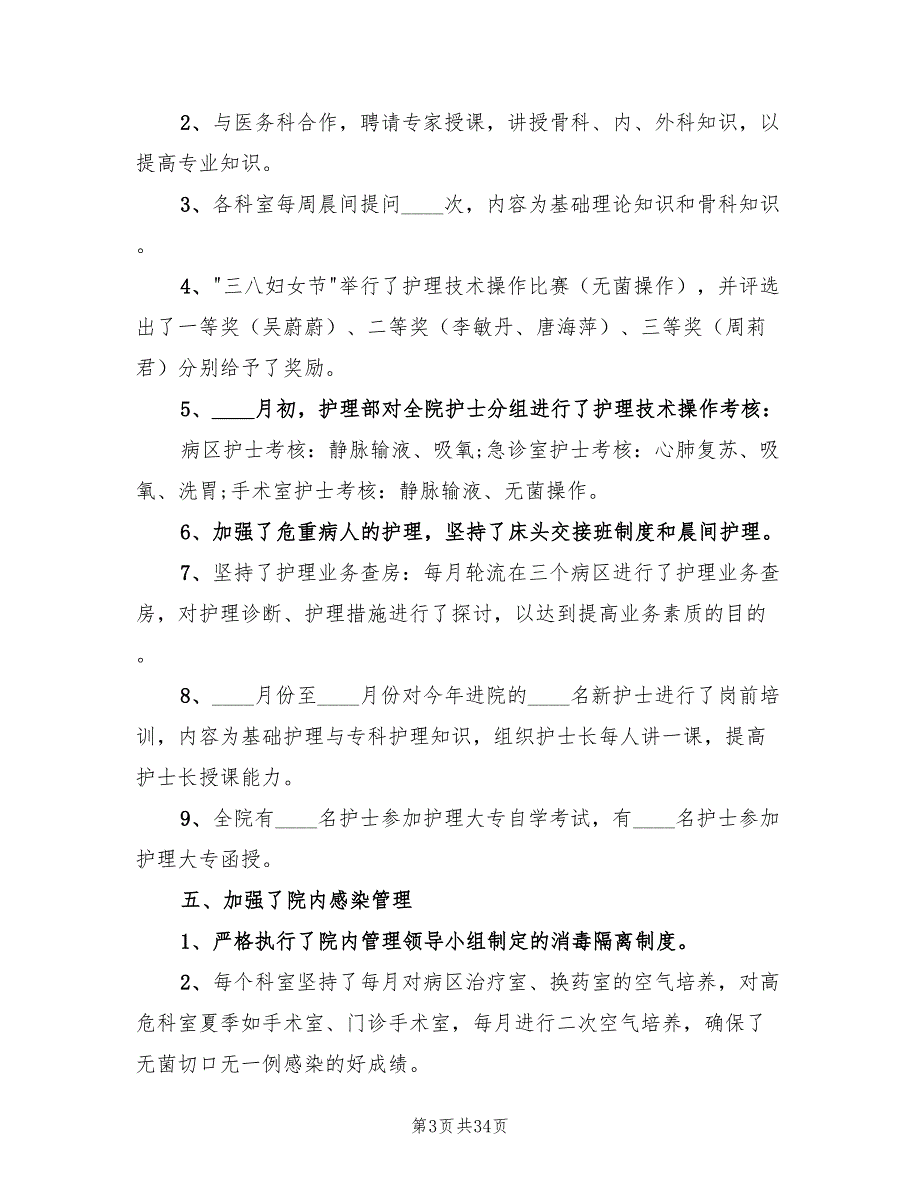 2、与医务科合作，聘请专家授课，讲授骨科、内、外科知识，以
提高专业知识。
3、各科室每周晨间提问____次，内容为基础理论知识和骨科知识
。
4、"三八妇女节"举行了护理技术操作比赛（无菌操作），并评选
出了一等奖（吴蔚蔚）、二等奖（李敏丹、唐海萍）、三等奖（周莉
君）分别给予了奖励。
5、____月初，护理部对全院护士分组进行了护理技术操作考核：
病区护士考核：静脉输液、吸氧;急诊室护士考核：心肺复苏、吸
氧、洗胃;手术室护士考核：静脉输液、无菌操作。
6、加强了危重病人的护理，坚持了床头交接班制度和晨间护理。
7、坚持了护理业务查房：每月轮流在三个病区进行了护理业务查
房，对护理诊断、护理措施进行了探讨，以达到提高业务素质的目的
。
8、____月份至____月份对今年进院的____名新护士进行了岗前培
训，内容为基础护理与专科护理知识，组织护士长每人讲一课，提高
护士长授课能力。
9、全院有____名护士参加护理大专自学考试，有____名护士参加
护理大专函授。
五、加强了院内感染管理
1、严格执行了院内管理领导小组制定的消毒隔离制度。
2、每个科室坚持了每月对病区治疗室、换药室的空气培养，对高
危科室夏季如手术室、门诊手术室，每月进行二次空气培养，确保了
无菌切口无一例感染的好成绩。
第3页共34页